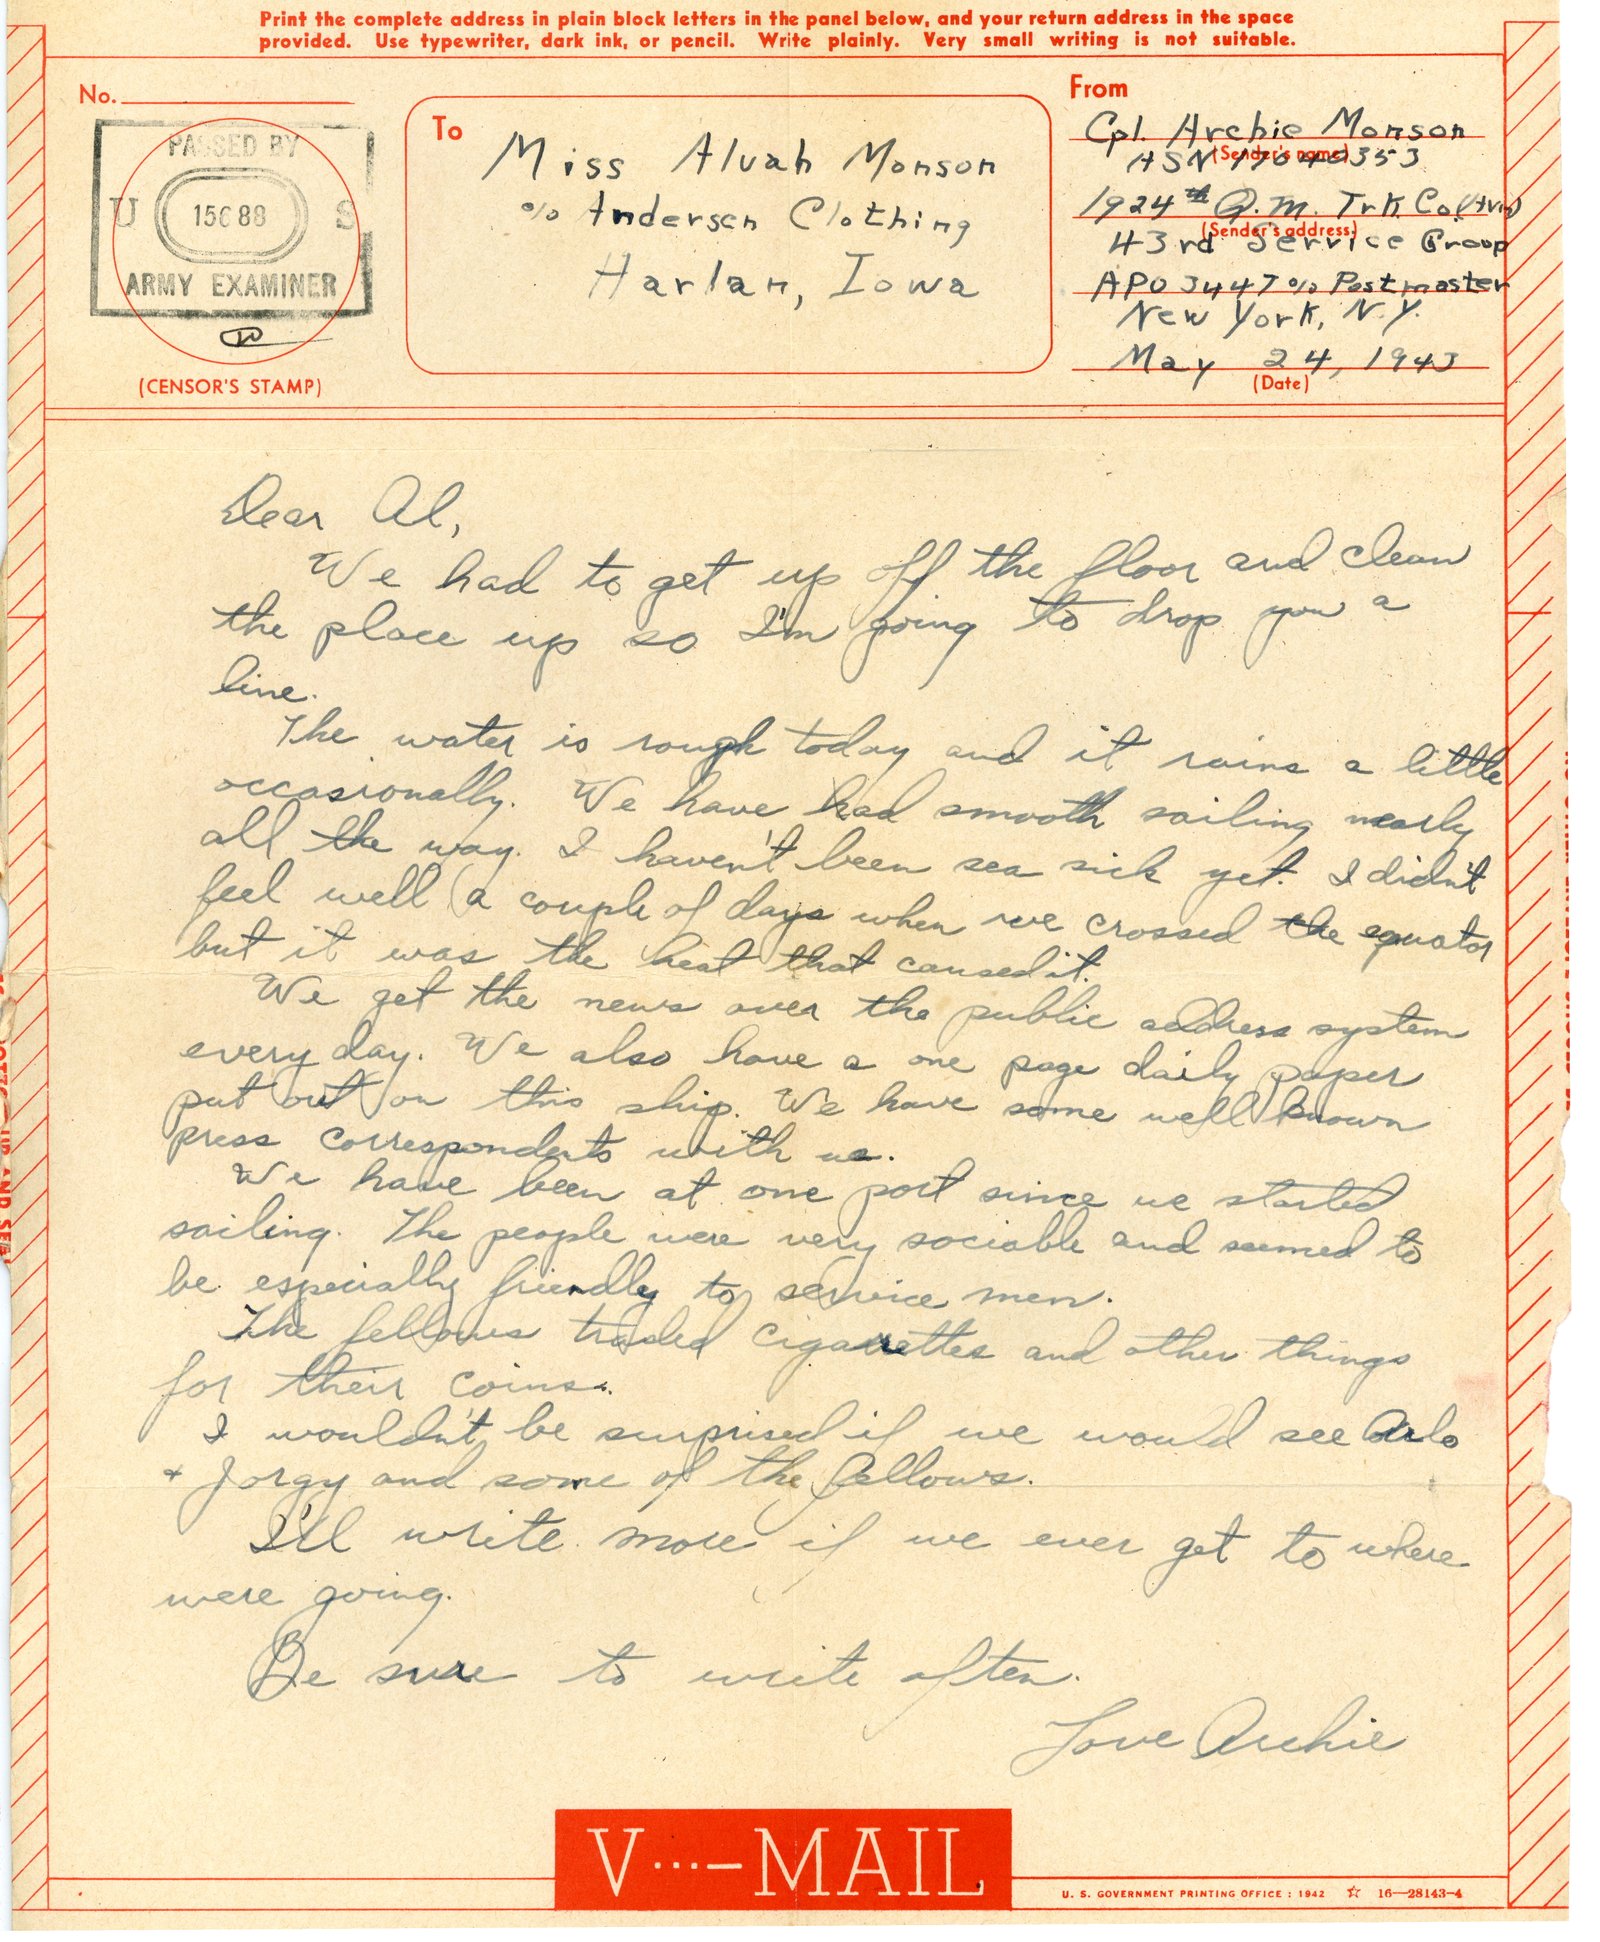 Print the complete address in plain block letters in the panel below, and your return address in the space
provided. Use typewriter, dark ink, or pencil. Write plainly. Very small writing is not suitable.
No.
PASSED BY
U 15688 S
ARMY EXAMINER
(CENSOR'S STAMP)
To
Miss Alvah Monson
% Andersen Clothing
Harlan, Iowa
From
Cpl. Archie Monson
(Sender's name)
ASN 17040353
1924th Q.M. Trk Co. (Avn)
(Sender's address)
43rd Service Group
APO 3447 % Postmaster
New York, N.Y.
May 24, 1943
(Date)
Dear Al,
We had to get up off the floor and clean
the place up so I'm going to drop you a
line.
The water is rough today and it rains a little
occasionally. We have had smooth sailing nearly
all the way. I haven't been sea sick yet. I didn't
feel well a couple of days when we crossed the equator
but it was the heat that caused it.
We get the news over the public address system
every day. We also have a one page daily paper
put out on this ship. We have some well known
press correspondents with us.
We have been at one port since we started
sailing. The people were very sociable and seemed to
be especially friendly to service men.
The fellows traded cigarettes and other things
for their coins.
I wouldn't be surprised if we would see Arlo
+ Jorgy and some of the fellows.
I'll write more if we ever get to where
were going.
Be sure to write often.
Love Archie
V···—MAIL
U. S. GOVERNMENT PRINTING OFFICE : 1942 ☆ 16—28143-4